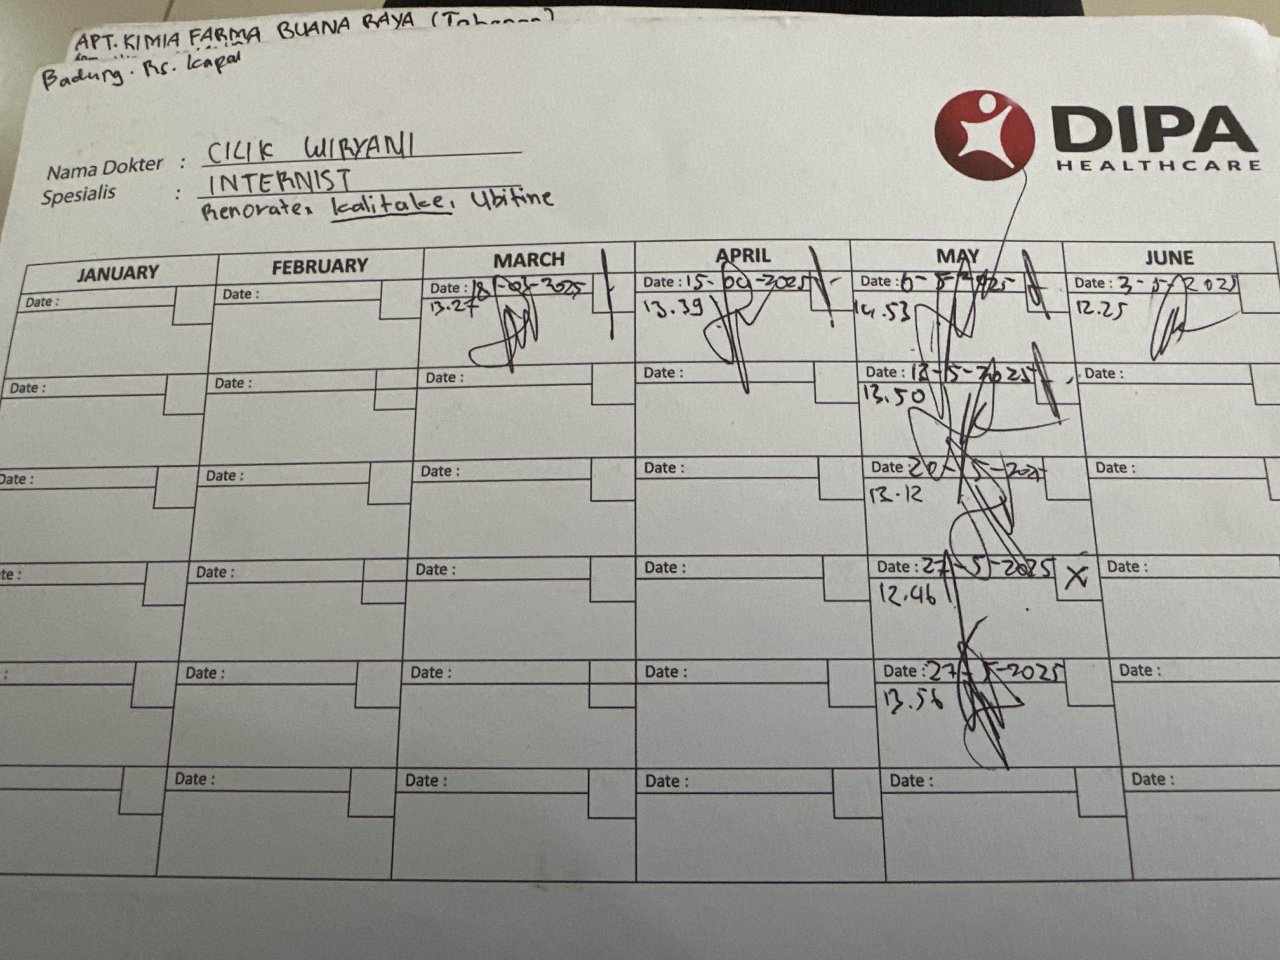 APT. KIMIA FARMA BUANA RAYA
Badung. Rs. Kapal
DIPA
HEALTHCARE
Nama Dokter : CILIK WIRYANI
Spesialis : INTERNIST
Renorate, Kalitake, Ubitine
JANUARY FEBRUARY MARCH APRIL MAY JUNE
Date : Date : Date : 18-03-2025 Date : 15-04-2025 Date : 6-5-2025 Date : 3-5-2025
13.27 13.39 14.53 12.25
Date : Date : Date : Date : Date : 13-5-2025 Date :
13.50
Date : Date : Date : Date : Date : 20-5-2025 Date :
13.12
Date : Date : Date : Date : 27-5-2025 X Date :
12.46
Date : Date : Date : Date : 27-5-2025 Date :
13.56
Date : Date : Date : Date : Date :